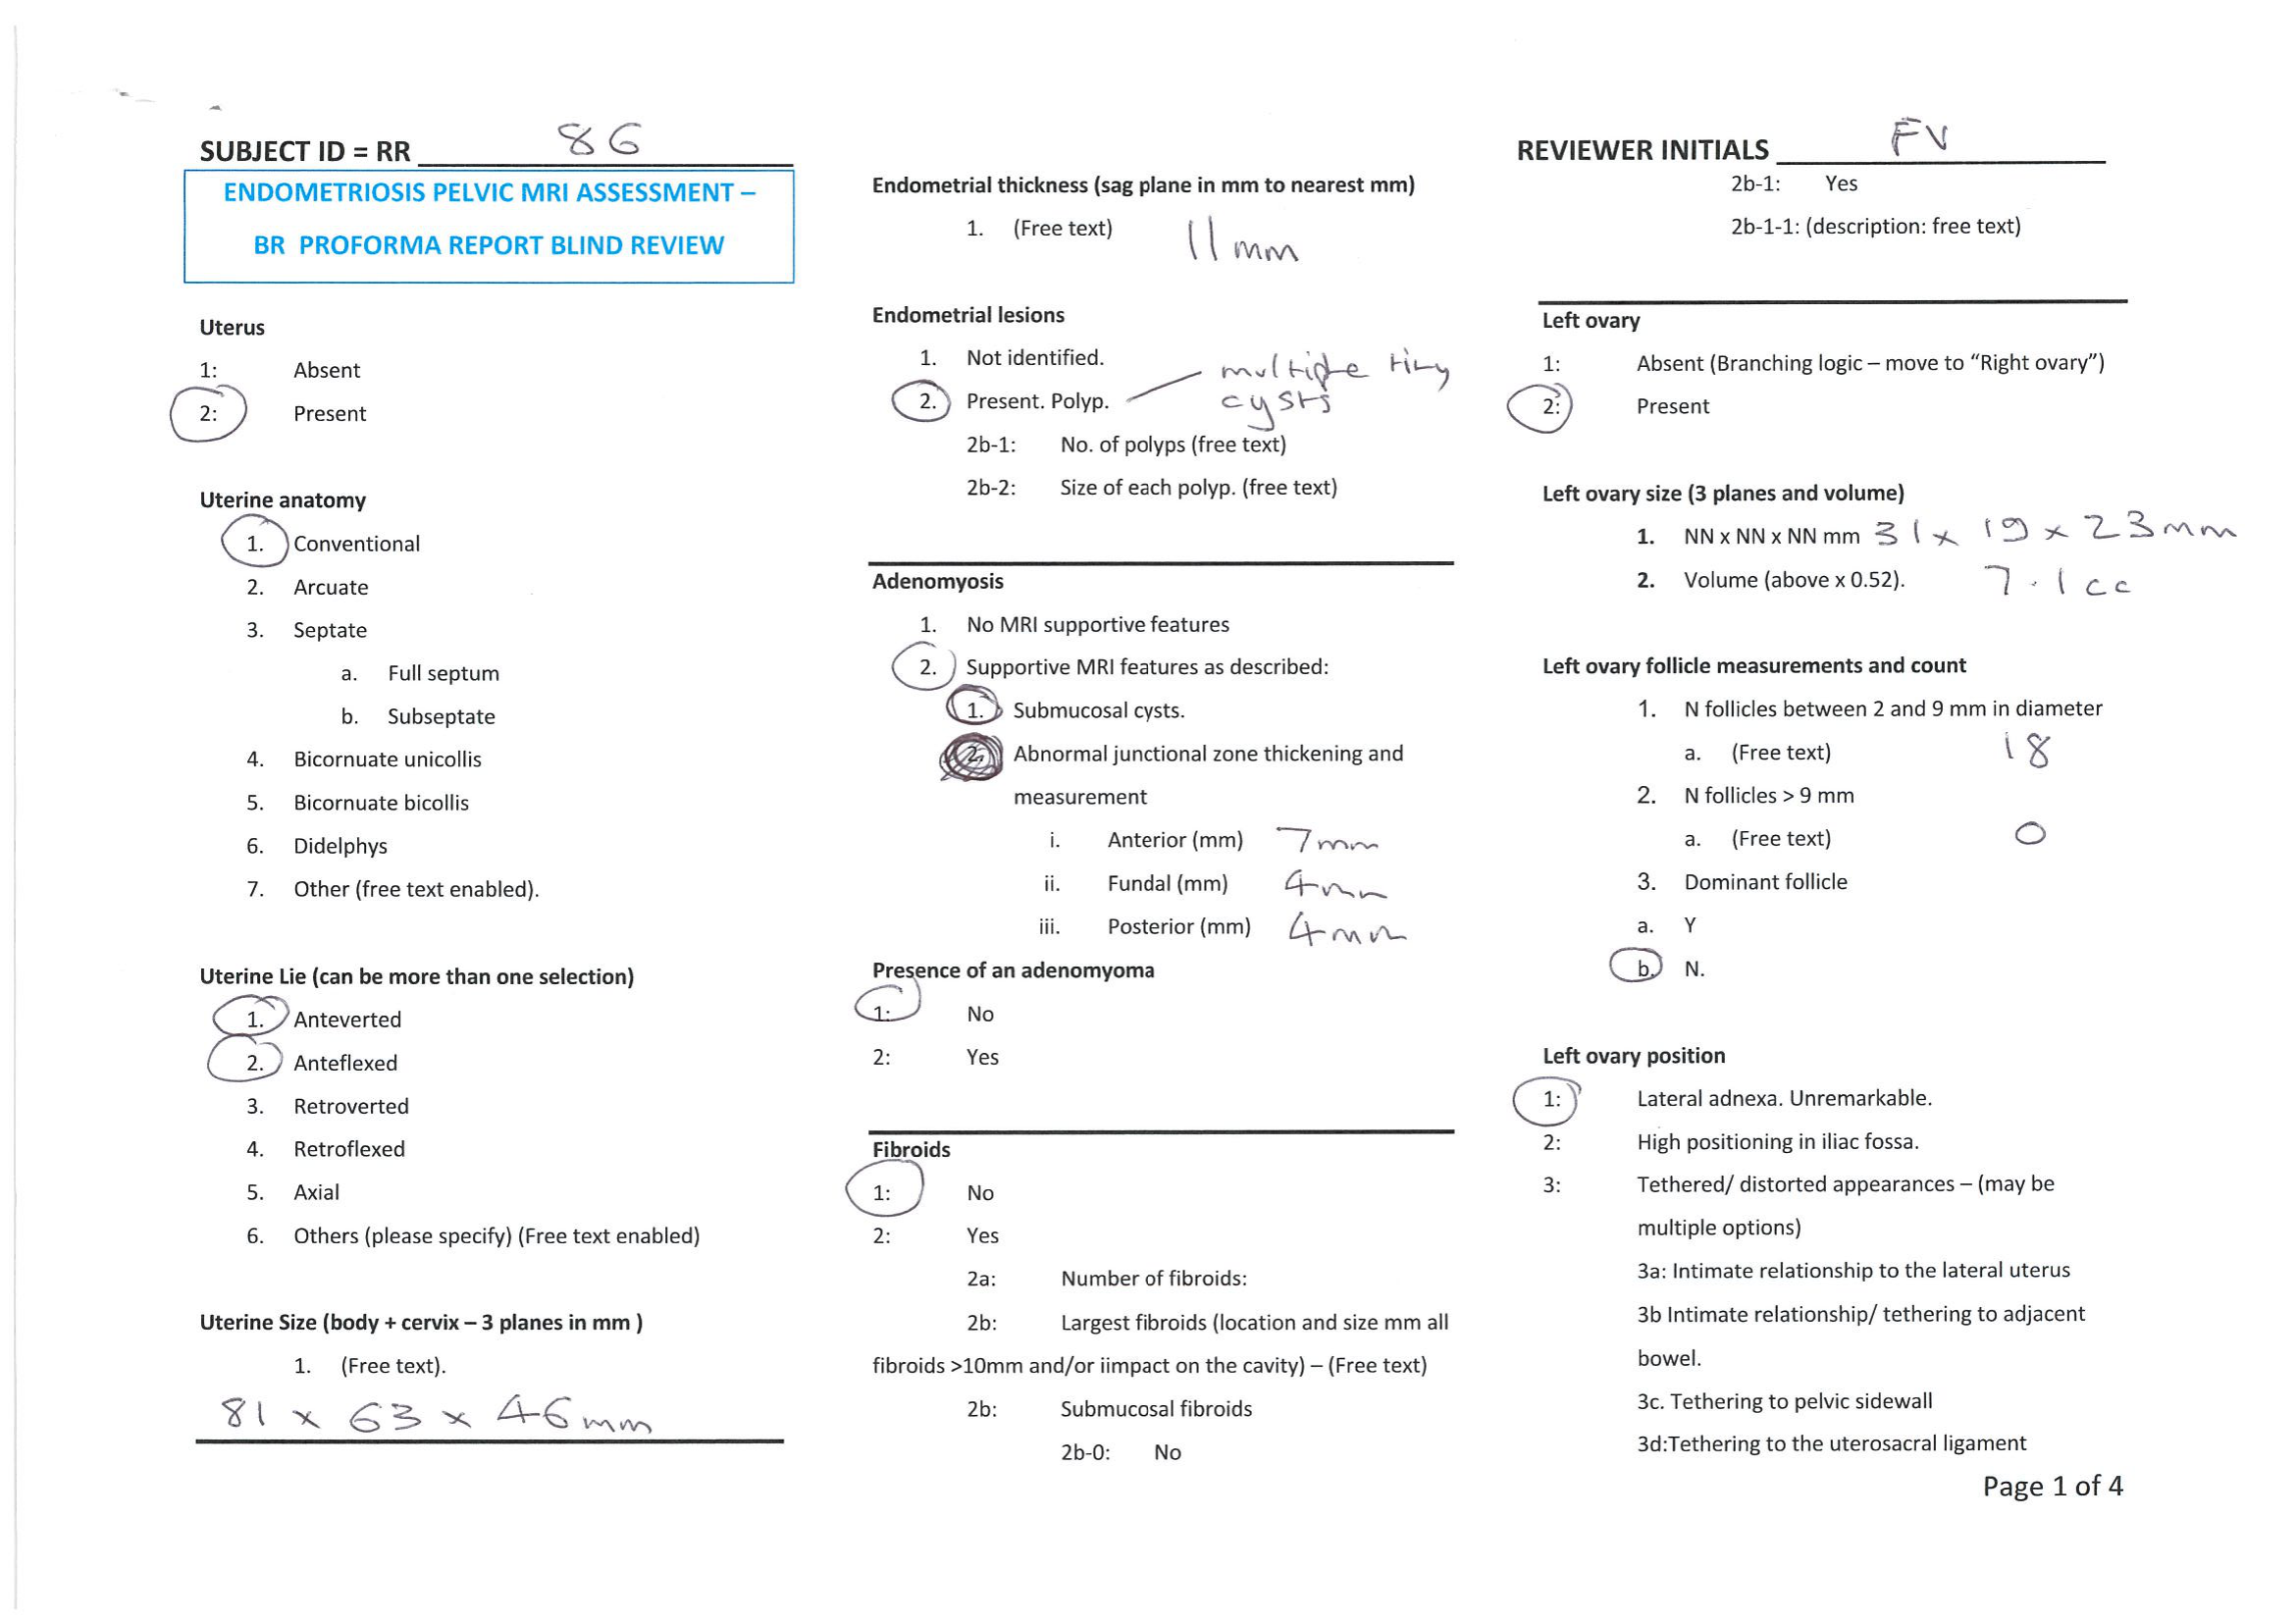 SUBJECT ID = RR 86
ENDOMETRIOSIS PELVIC MRI ASSESSMENT –
BR PROFORMA REPORT BLIND REVIEW
Uterus
1: Absent
2: Present
Uterine anatomy
1. Conventional
2. Arcuate
3. Septate
a. Full septum
b. Subseptate
4. Bicornuate unicollis
5. Bicornuate bicollis
6. Didelphys
7. Other (free text enabled).
Uterine Lie (can be more than one selection)
1. Anteverted
2. Anteflexed
3. Retroverted
4. Retroflexed
5. Axial
6. Others (please specify) (Free text enabled)
Uterine Size (body + cervix – 3 planes in mm )
1. (Free text).
81 x 63 x 46mm
Endometrial thickness (sag plane in mm to nearest mm)
1. (Free text) 11mm
Endometrial lesions
1. Not identified.
2. Present. Polyp. multiple tiny
cysts
2b-1: No. of polyps (free text)
2b-2: Size of each polyp. (free text)
Adenomyosis
1. No MRI supportive features
2. Supportive MRI features as described:
1. Submucosal cysts.
2. Abnormal junctional zone thickening and
measurement
i. Anterior (mm) 7mm
ii. Fundal (mm) 4mm
iii. Posterior (mm) 4mm
Presence of an adenomyoma
1: No
2: Yes
Fibroids
1: No
2: Yes
2a: Number of fibroids:
2b: Largest fibroids (location and size mm all
fibroids >10mm and/or iimpact on the cavity) – (Free text)
2b: Submucosal fibroids
2b-0: No
REVIEWER INITIALS FV
2b-1: Yes
2b-1-1: (description: free text)
Left ovary
1: Absent (Branching logic – move to “Right ovary”)
2: Present
Left ovary size (3 planes and volume)
1. NN x NN x NN mm 31 x 19 x 23mm
2. Volume (above x 0.52). 7.1cc
Left ovary follicle measurements and count
1. N follicles between 2 and 9 mm in diameter
a. (Free text) 18
2. N follicles > 9 mm
a. (Free text) 0
3. Dominant follicle
a. Y
b. N.
Left ovary position
1: Lateral adnexa. Unremarkable.
2: High positioning in iliac fossa.
3: Tethered/ distorted appearances – (may be
multiple options)
3a: Intimate relationship to the lateral uterus
3b Intimate relationship/ tethering to adjacent
bowel.
3c. Tethering to pelvic sidewall
3d:Tethering to the uterosacral ligament
Page 1 of 4